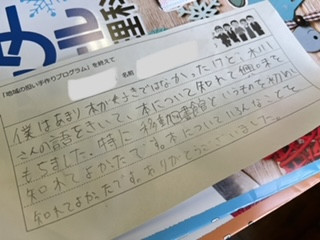 「地域の担い手作りプログラム」を終えて
名前
僕はあまり本が好きではなかったけど、水川
さんの話をきいて、本について知れて興味を
もちました。特に移動図書館というものを初めに
知れてよかったです。本についていろんなことを
知れてよかったです。ありがとうございました。